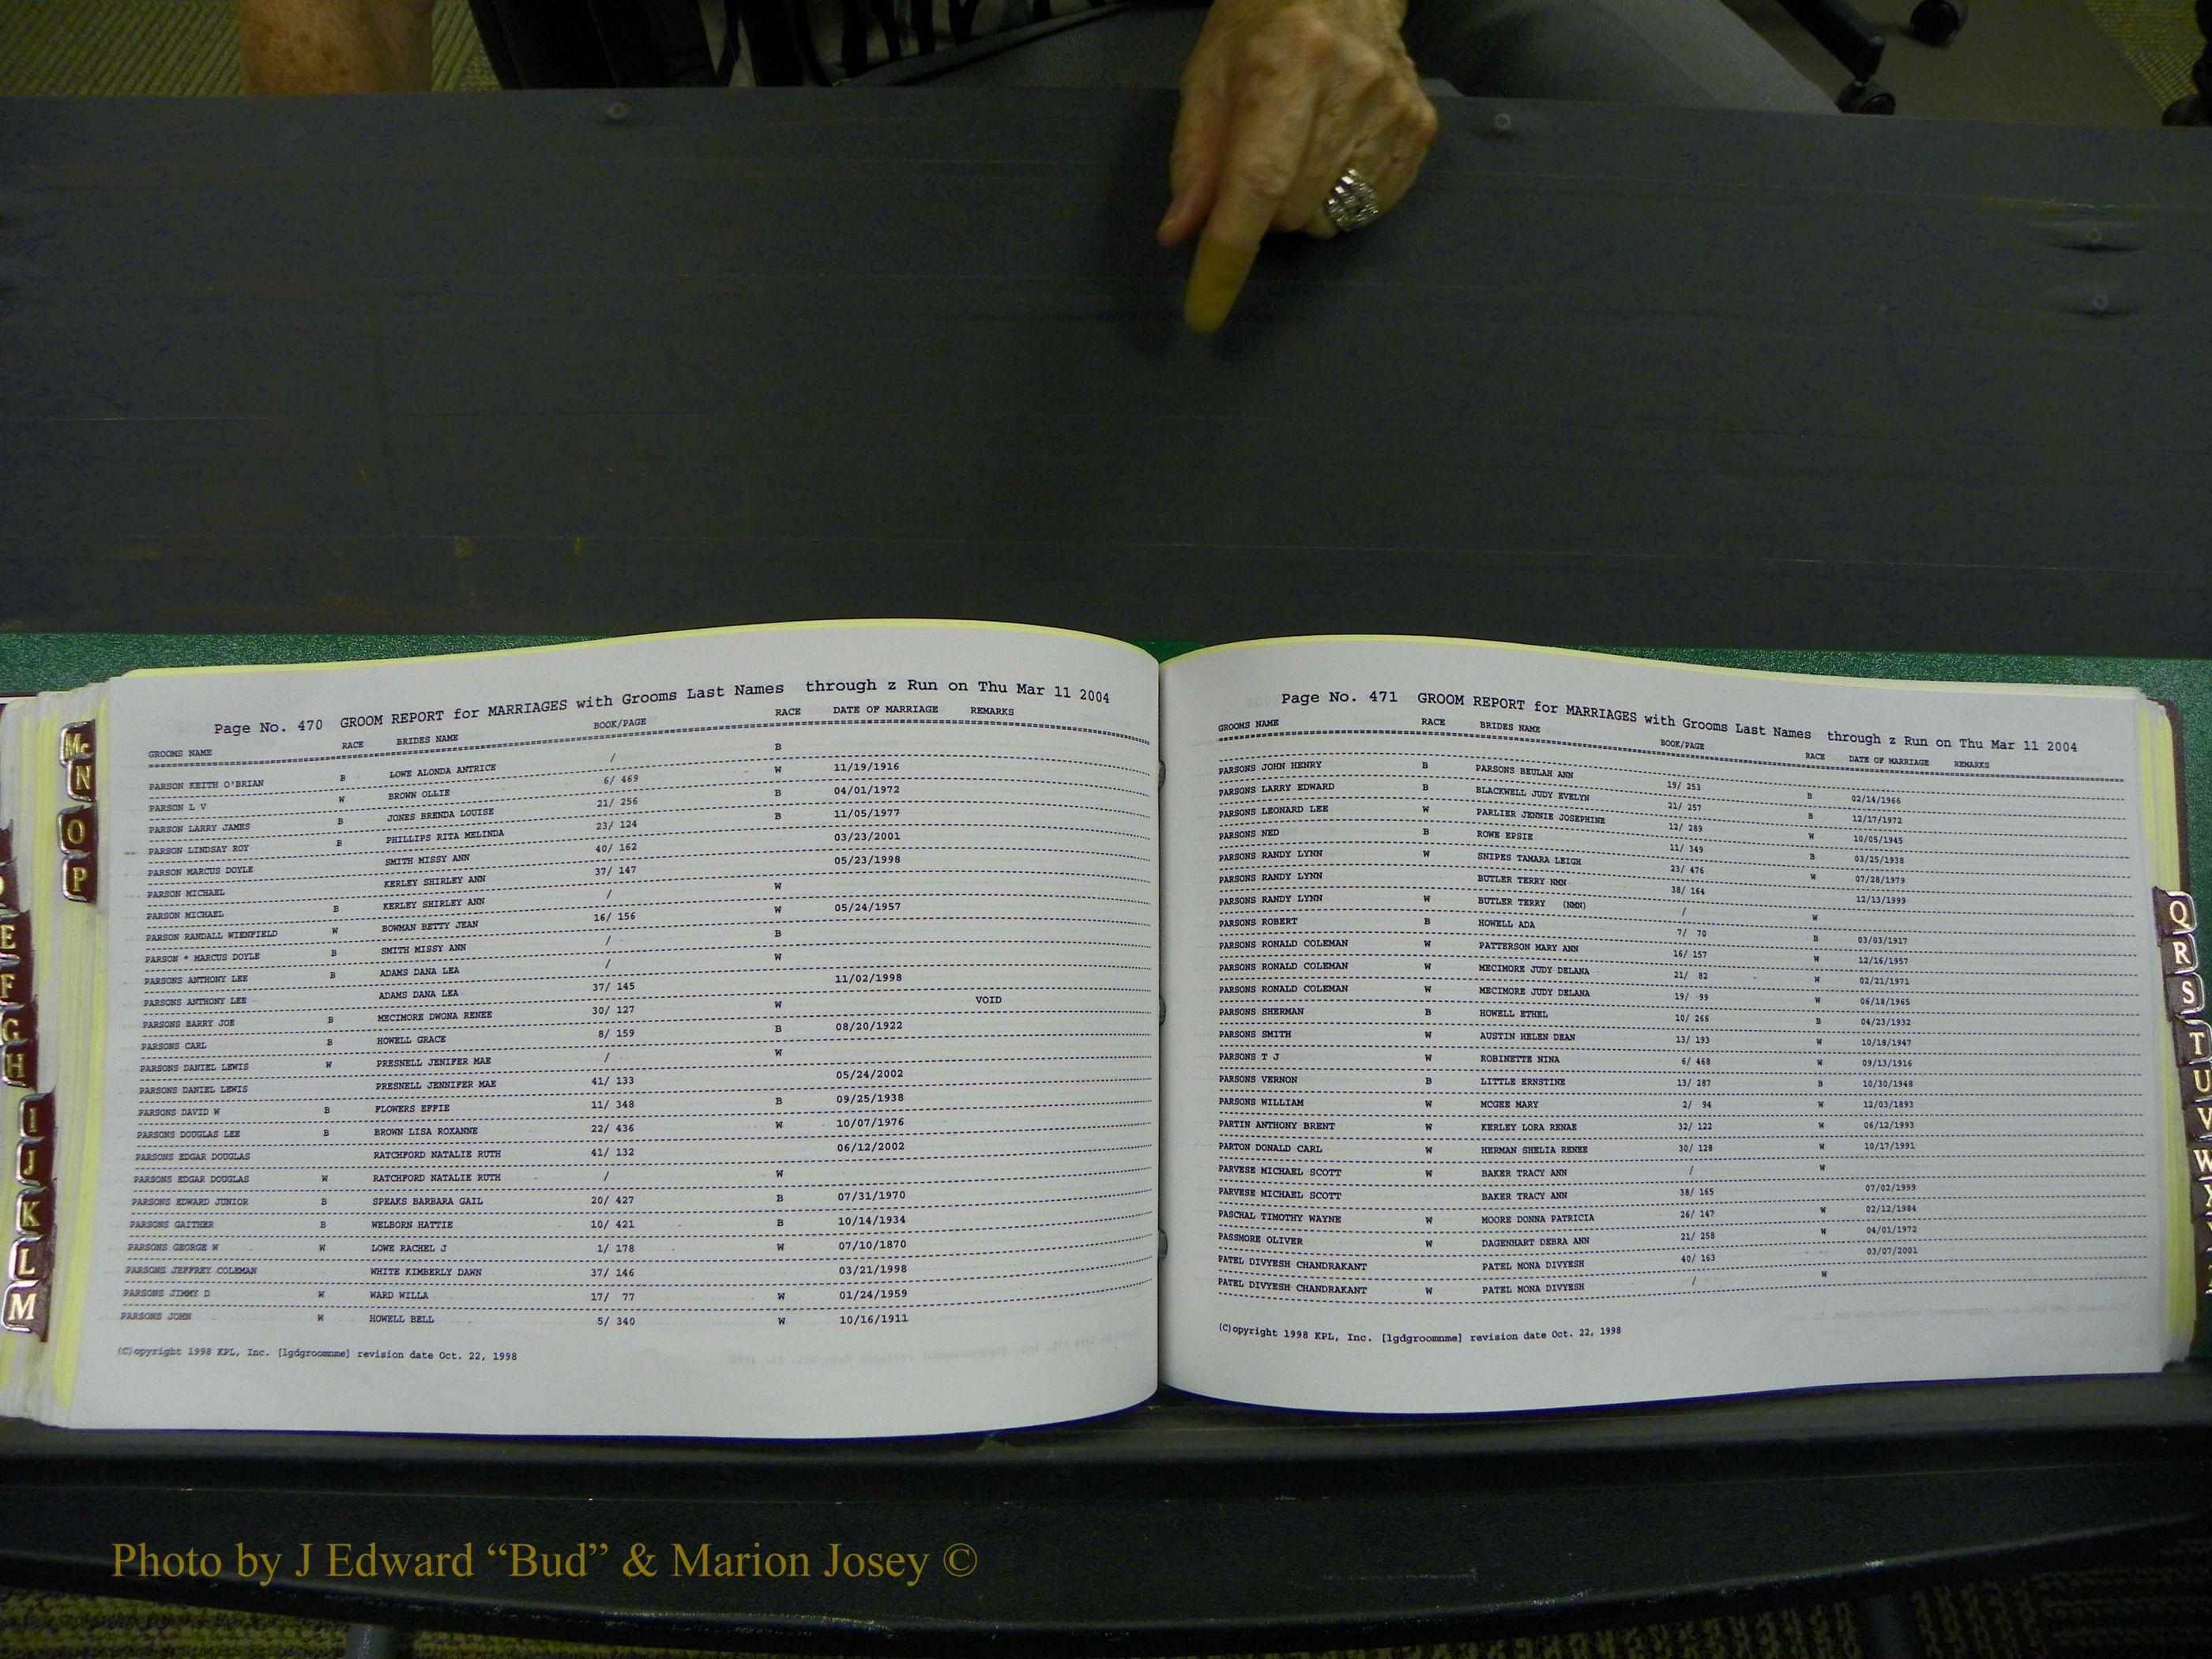 Page No. 470 GROOM REPORT for MARRIAGES with Grooms Last Names through z Run on Thu Mar 11 2004
GROOMS NAME RACE BRIDES NAME BOOK/PAGE RACE DATE OF MARRIAGE REMARKS
PARSON KEITH O'BRIAN B LOWE ALONDA ANTRICE / B
PARSON L V W BROWN OLLIE 6/ 469 W 11/19/1916
PARSON LARRY JAMES B JONES BRENDA LOUISE 21/ 256 B 04/01/1972
PARSON LINDSAY ROY B PHILLIPS RITA MELINDA 23/ 124 B 11/05/1977
PARSON MARCUS DOYLE SMITH MISSY ANN 40/ 162 03/23/2001
PARSON MICHAEL KERLEY SHIRLEY ANN 37/ 147 05/23/1998
PARSON MICHAEL B KERLEY SHIRLEY ANN / W
PARSON RANDALL WIENFIELD W BOWMAN BETTY JEAN 16/ 156 W 05/24/1957
PARSON * MARCUS DOYLE B SMITH MISSY ANN / B
PARSONS ANTHONY LEE B ADAMS DANA LEA / W
PARSONS ANTHONY LEE ADAMS DANA LEA 37/ 145 11/02/1998
PARSONS BARRY JOE B MECIMORE DWONA RENEE 30/ 127 W VOID
PARSONS CARL B HOWELL GRACE 8/ 159 B 08/20/1922
PARSONS DANIEL LEWIS W PRESNELL JENIFER MAE / W
PARSONS DANIEL LEWIS PRESNELL JENNIFER MAE 41/ 133 05/24/2002
PARSONS DAVID W B FLOWERS EFFIE 11/ 348 B 09/25/1938
PARSONS DOUGLAS LEE B BROWN LISA ROXANNE 22/ 436 W 10/07/1976
PARSONS EDGAR DOUGLAS RATCHFORD NATALIE RUTH 41/ 132 06/12/2002
PARSONS EDGAR DOUGLAS W RATCHFORD NATALIE RUTH / W
PARSONS EDWARD JUNIOR B SPEAKS BARBARA GAIL 20/ 427 B 07/31/1970
PARSONS GAITHER B WELBORN HATTIE 10/ 421 B 10/14/1934
PARSONS GEORGE W W LOWE RACHEL J 1/ 178 W 07/10/1870
PARSONS JEFFREY COLEMAN WHITE KIMBERLY DAWN 37/ 146 03/21/1998
PARSONS JIMMY D W WARD WILLA 17/ 77 W 01/24/1959
PARSONS JOHN W HOWELL BELL 5/ 340 W 10/16/1911
(C)opyright 1998 KPL, Inc. [lgdgroomnme] revision date Oct. 22, 1998
Page No. 471 GROOM REPORT for MARRIAGES with Grooms Last Names through z Run on Thu Mar 11 2004
GROOMS NAME RACE BRIDES NAME BOOK/PAGE RACE DATE OF MARRIAGE REMARKS
PARSONS JOHN HENRY B PARSONS BEULAH ANN 19/ 253 B 02/14/1966
PARSONS LARRY EDWARD B BLACKWELL JUDY EVELYN 21/ 257 B 12/17/1972
PARSONS LEONARD LEE W PARLIER JENNIE JOSEPHINE 12/ 289 W 10/05/1945
PARSONS NED B ROWE EPSIE 11/ 349 B 03/25/1938
PARSONS RANDY LYNN W SNIPES TAMARA LEIGH 23/ 476 W 07/28/1979
PARSONS RANDY LYNN BUTLER TERRY NMN 38/ 164 12/13/1999
PARSONS RANDY LYNN W BUTLER TERRY (NMN) / W
PARSONS ROBERT B HOWELL ADA 7/ 70 B 03/03/1917
PARSONS RONALD COLEMAN W PATTERSON MARY ANN 16/ 157 W 12/16/1957
PARSONS RONALD COLEMAN W MECIMORE JUDY DELANA 21/ 82 W 02/21/1971
PARSONS RONALD COLEMAN W MECIMORE JUDY DELANA 19/ 99 W 06/18/1965
PARSONS SHERMAN B HOWELL ETHEL 10/ 266 B 04/23/1932
PARSONS SMITH W AUSTIN HELEN DEAN 13/ 193 W 10/18/1947
PARSONS T J W ROBINETTE NINA 6/ 468 W 09/13/1916
PARSONS VERNON B LITTLE ERNSTINE 13/ 287 B 10/30/1948
PARSONS WILLIAM W MCGEE MARY 2/ 94 W 12/03/1893
PARTIN ANTHONY BRENT W KERLEY LORA RENAE 32/ 122 W 06/12/1993
PARTON DONALD CARL W HERMAN SHELIA RENEE 30/ 128 W 10/17/1991
PARVESE MICHAEL SCOTT W BAKER TRACY ANN / W
PARVESE MICHAEL SCOTT BAKER TRACY ANN 38/ 165 07/02/1999
PASCHAL TIMOTHY WAYNE W MOORE DONNA PATRICIA 26/ 147 W 02/12/1984
PASSMORE OLIVER W DAGENHART DEBRA ANN 21/ 258 W 04/01/1972
PATEL DIVYESH CHANDRAKANT PATEL MONA DIVYESH 40/ 163 03/07/2001
PATEL DIVYESH CHANDRAKANT W PATEL MONA DIVYESH / W
(C)opyright 1998 KPL, Inc. [lgdgroomnme] revision date Oct. 22, 1998
Mc
N
O
P
E
F
G
H
I
J
K
L
M
Q
R
S
T
U
V
W
Photo by J Edward “Bud” & Marion Josey ©